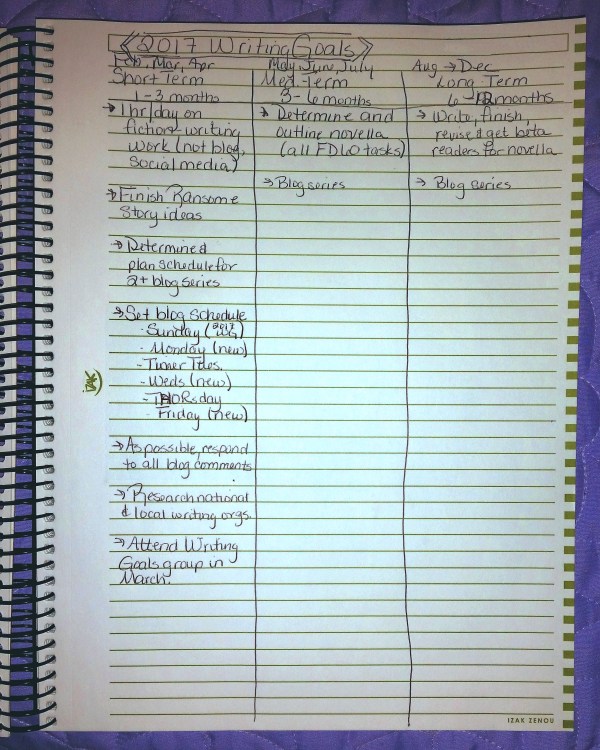 2017 Writing Goals
Feb, Mar, Apr
Short Term
1-3 months
→ 1 hr/day on
fiction-writing
work (not blog,
social media)
→ Finish Ransome
Story ideas
→ Determine &
plan schedule for
2+ blog series
→ Set blog schedule
- Sunday (2017 WG)
- Monday (new)
- Timer Tues.
- Weds (new)
- THORsday
- Friday (new)
→ As possible, respond
to all blog comments
→ Research national
& local writing orgs.
→ Attend Writing
Goals group in
March.
May, June, July
Med. Term
3-6 months
→ Determine and
outline novella
(all FDLO tasks)
→ Blog series
Aug → Dec
Long Term
6-12 months
→ Write, finish,
revise & get beta
readers for novella
→ Blog series
IZAK ZENOU